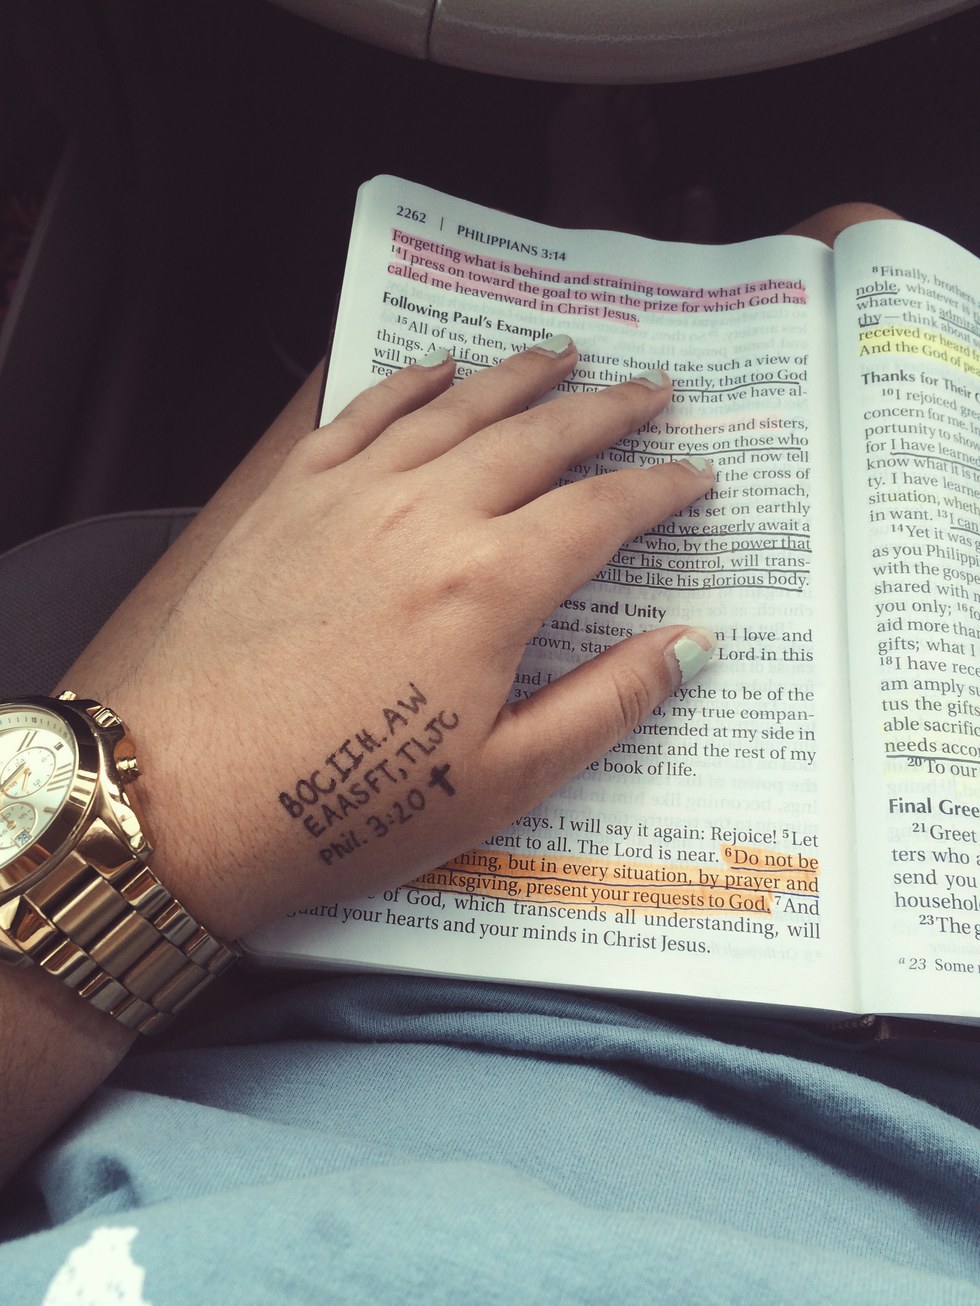 2262 | PHILIPPIANS 3:14
Forgetting what is behind and straining toward what is ahead,
14 I press on toward the goal to win the prize for which God has
called me heavenward in Christ Jesus.
Following Paul's Example
15 All of us, then, nature should take such a view of
things. And if on so you think rently, that too God
will m eas only let to what we have al-
rea
ple, brothers and sisters,
eep your eyes on those who
told you and now tell
ny live f the cross of
their stomach,
is set on earthly
nd we eagerly await a
21 who, by the power that
der his control, will trans-
will be like his glorious body.
ness and Unity
and sisters m I love and
rown, stan Lord in this
and I tyche to be of the
3 y a, my true compan-
ontended at my side in
ement and the rest of my
e book of life.
ways. I will say it again: Rejoice! 5 Let
dent to all. The Lord is near. 6 Do not be
thing, but in every situation, by prayer and
hanksgiving, present your requests to God. 7 And
e of God, which transcends all understanding, will
uard your hearts and your minds in Christ Jesus.
8 Finally, brothe
noble, whatever is
whatever is admir
thy — think about s
received or heard f
And the God of pea
Thanks for Their G
10 I rejoiced grea
concern for me. In
portunity to show
for I have learned
know what it is to
ty. I have learne
situation, wheth
in want. 13 I can
14 Yet it was g
as you Philippi
with the gospe
shared with m
you only; 16 fo
aid more than
gifts; what I
18 I have rece
am amply su
tus the gifts
able sacrific
needs accor
20 To our
Final Gree
21 Greet
ters who a
send you
househol
23 The g
a 23 Some m
BOCIIH. AW
EAASFT, TLJC
Phil. 3:20